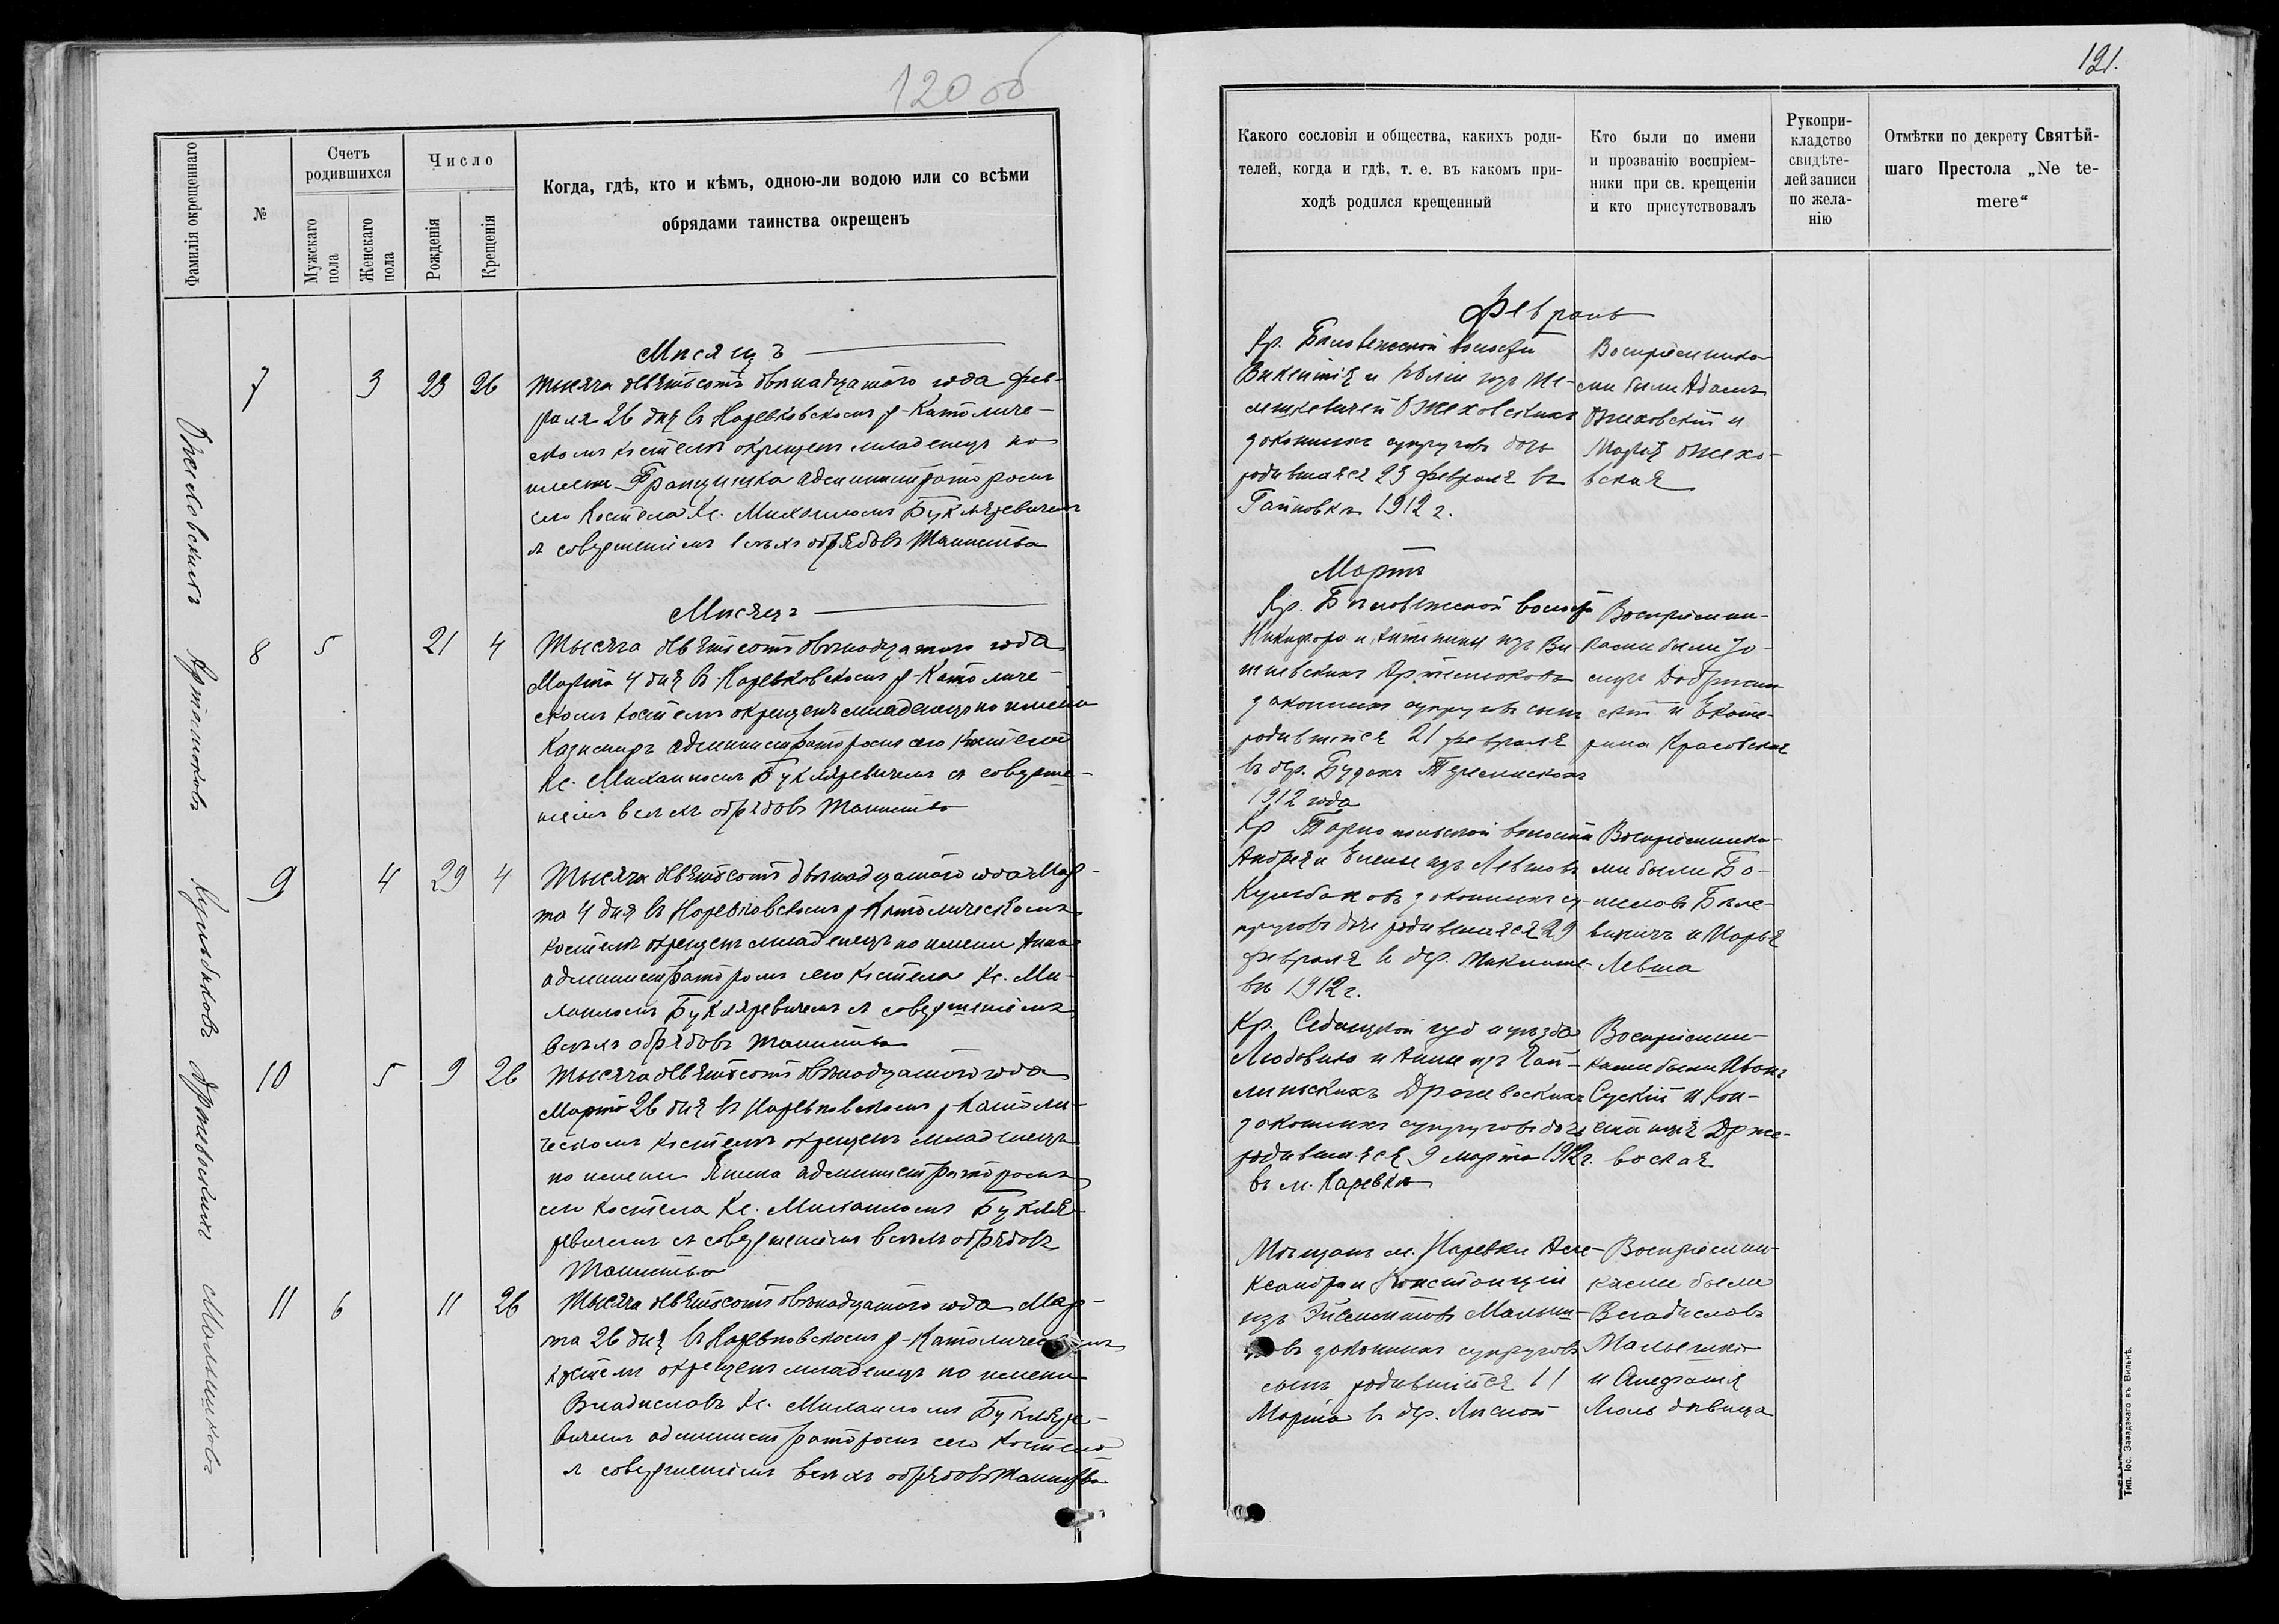 120 об
Фамилія окрещеннаго
№
Счетъ
родившихся
Мужскаго
пола
Женскаго
пола
Число
Рожденія
Крещенія
Когда, гдѣ, кто и кѣмъ, одною-ли водою или со всѣми
обрядами таинства окрещенъ
Мѣсяцъ
7 3 23 26
Тысяча девятьсотъ двѣнадцатаго года Фев-
раля 26 дня въ Наревковскомъ р-Католиче-
скомъ костелѣ окрещенъ младенецъ по
имени Францишка администраторомъ
сего Костела Кс. Михаиломъ Букляревичемъ
съ совершеніемъ всѣхъ обрядовъ Таинства
Мѣсяцъ
Артемюковъ
8 5 21 4
Тысяча девятьсотъ двѣнадцатаго года
Марта 4 дня въ Наревковскомъ р-Католиче-
скомъ костелѣ окрещенъ младенецъ по имени
Казимиръ администраторомъ сего Костела
Кс. Михаиломъ Букляревичемъ съ соверше-
ніемъ всѣхъ обрядовъ Таинства
Кульбаковъ
9 4 29 4
Тысяча девятьсотъ двѣнадцатаго года Мар-
та 4 дня въ Наревковскомъ р Католическомъ
костелѣ окрещенъ младенецъ по имени Анна
администраторомъ сего костела Кс. Ми-
хаиломъ Букляревичемъ съ совершеніемъ
всѣхъ обрядовъ таинства
10 5 9 26
Тысяча девятьсотъ двѣнадцатаго года
Марта 26 дня въ Наревковскомъ р-Католи-
ческомъ костелѣ окрещенъ младенецъ
по имени Янина администраторомъ
сего костела Кс. Михаиломъ Букля-
ревичемъ съ совершеніемъ всѣхъ обрядовъ
Таинства
11 6 11 26
Тысяча девятьсотъ двѣнадцатаго года Мар-
та 26 дня въ Наревковскомъ р-Католическомъ
костелѣ окрещенъ младенецъ по имени
Владиславъ Кс. Михаиломъ Букляре-
вичемъ администраторомъ сего Костела
съ совершеніемъ всѣхъ обрядовъ Таинства
121.
Какого сословія и общества, какихъ роди-
телей, когда и гдѣ, т. е. въ какомъ при-
ходѣ родился крещенный
Кто были по имени
и прозванію воспріем-
ники при св. крещеніи
и кто присутствовалъ
Рукопри-
кладство
свидѣте-
лей записи
по жела-
нію
Отмѣтки по декрету Святѣй-
шаго Престола „Ne te-
mere“
Февраль
Кр. Бѣловежской волости
Викентія и изъ
Ожеховскихъ
законныхъ супруговъ дочь
родившаяся 23 Февраля въ
Гайновкѣ 1912 г.
Воспріемника-
ми были Адамъ
Ожеховскій и
Марія Ожехо-
вская
Мартъ
Кр. Бѣловежской волости
Никифора и Антонины изъ Ви-
шневскихъ Артемюковъ
законныхъ супруговъ сынъ
родившійся 21 февраля
въ дер. Будахъ
1912 года
Воспріемни-
ками были Іо-
сифъ
скій и Екате-
рина Красовская
Кр волости
Андрея и Елены изъ Левшовъ
Кульбаковъ законныхъ су-
пруговъ дочь родившаяся 29
февраля въ дер.
вѣ 1912 г.
Воспріемника-
ми были Бо-
леславъ Бѣле-
вичъ и Марья
Левша
Кр. Сѣдлецкой губ и уѣзда
Людовика и Анны изъ
Држевоскихъ
законныхъ супруговъ дочь
родившаяся 9 марта 1912 г.
въ м. Наревкѣ
Воспріемни-
ками были Иванъ
Сускій и Кон-
станція Држе-
воская
Мѣщанъ м. Наревки Але-
ксандра и Констанціи
изъ Малыш-
ковъ законныхъ супруговъ
сынъ родившійся 11
Марта въ дер. Лѣсной
Воспріемни-
ками были
Владиславъ
Малышко
и
дѣвица
Тип. Іос. Завадзкаго въ Вильнѣ.